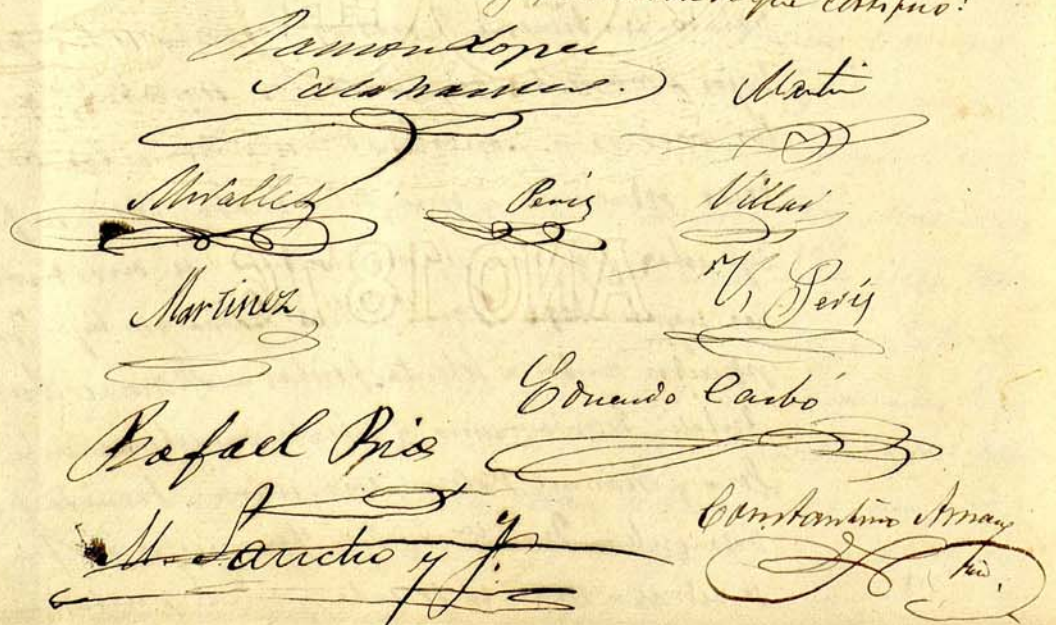 que certifico:
Ramon Lopez
Salamanca
Martí
Peris Villar
Martinez
V. Peris
Eduardo Carbó
Rafael Ria
M. Sancho y J.
Constantino Arnau